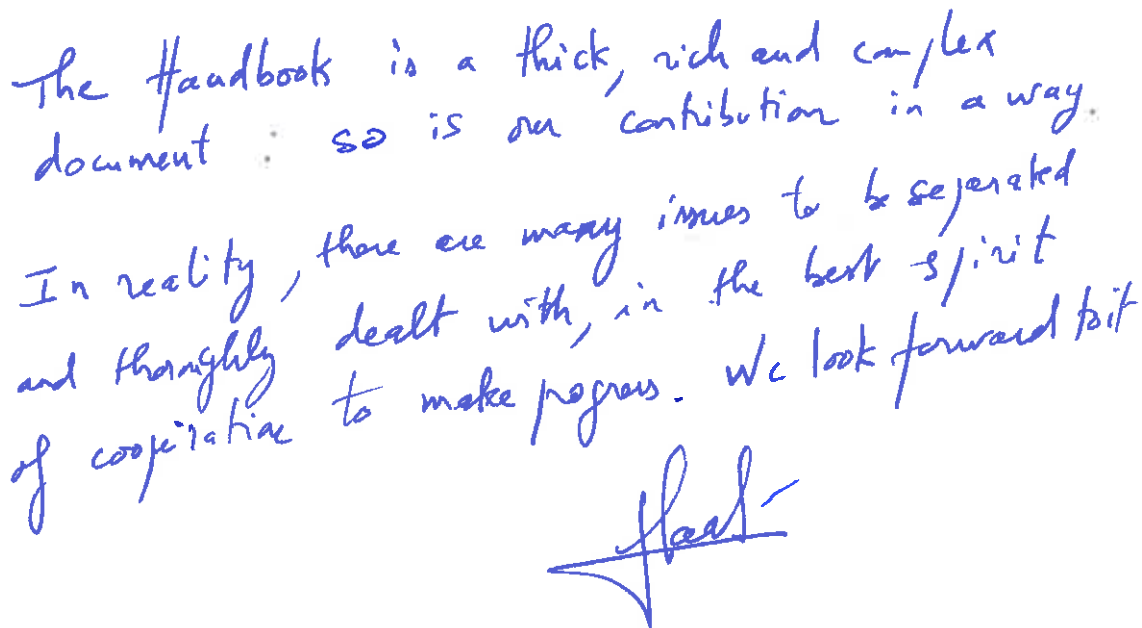 The Handbook is a thick, rich and complex
document : so is our contribution in a way.
In reality, there are many issues to be separated
and thoroughly dealt with, in the best spirit
of coopération to make progress. We look forward to it